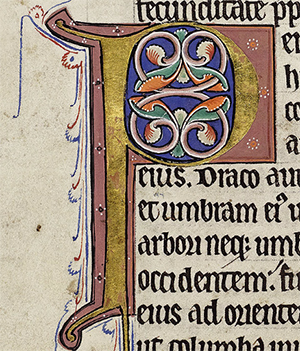 fecunditate pp
P
eius. Draco au
et umbram eiꝰ u
arbori neq: umb
occidentem. fu
eius ad orienten
ut columba in